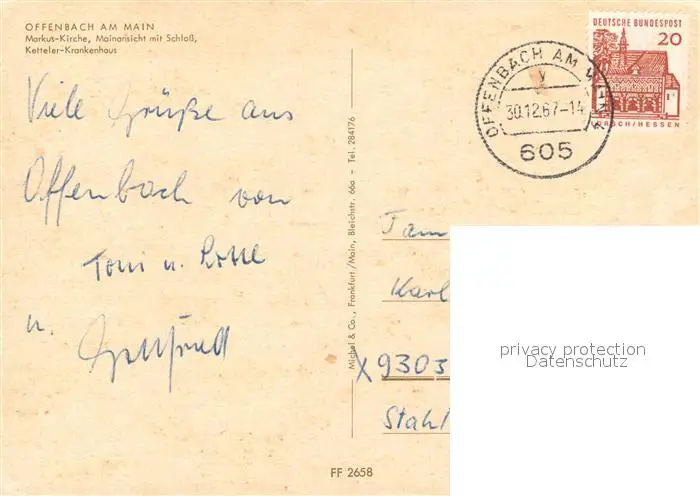 OFFENBACH AM MAIN
Markus-Kirche, Mainansicht mit Schloß,
Ketteler-Krankenhaus
Viele Grüße aus
Offenbach von
Toni u. Lotte
u. Gottfried
Michel & Co., Frankfurt/Main, Bleichstr. 66a - Tel. 284176
FF 2658
DEUTSCHE BUNDESPOST
20
LORSCH/HESSEN
OFFENBACH AM MAIN
30.12.67-14
605
Fam
Karl
X9303
Stahl
privacy protection
Datenschutz